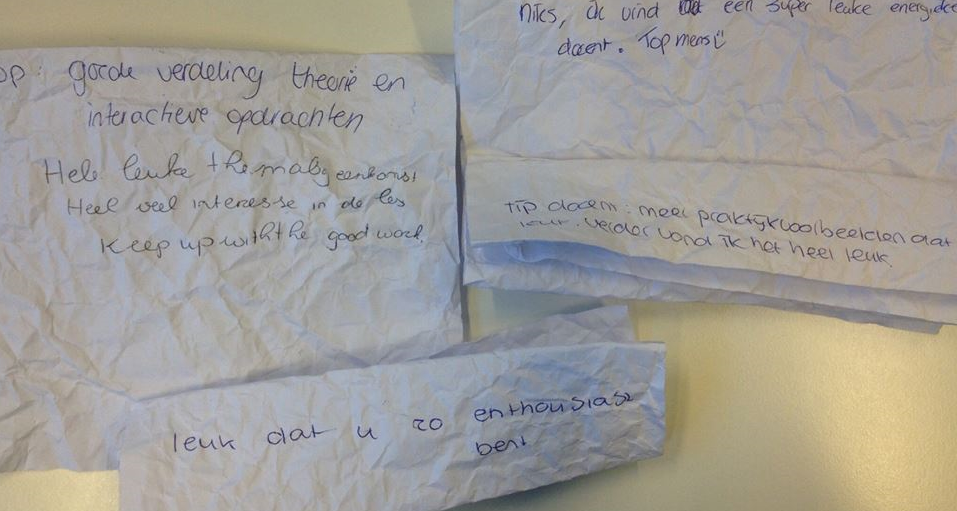 op: goede verdeling theorie en
interactieve opdrachten
Hele leuke themabijeenkomst
Heel veel interesse in de les
Keep up with the good work.
niks, ik vind een super leuke energieke
docent. Top mens!
Tip docent: meer praktijkvoorbeelden dat
leuk. Verder vond ik het heel leuk.
leuk dat u zo enthousiast
bent